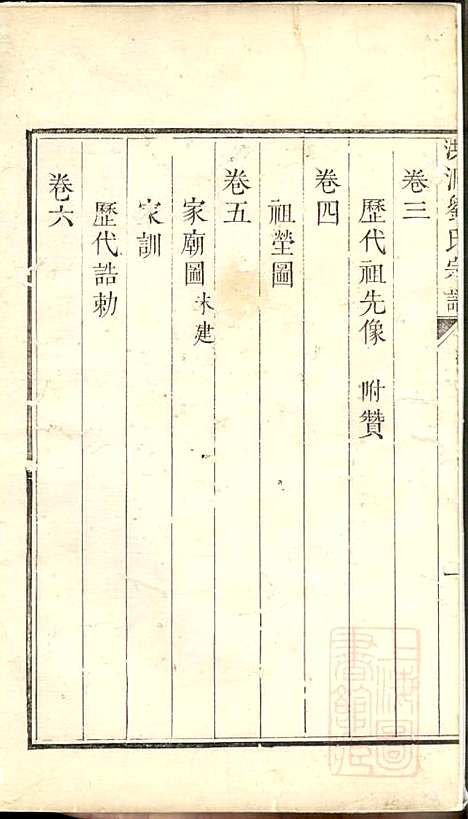 劉氏宗譜
一
卷三
歷代祖先像 附贊
卷四
祖塋圖
卷五
家廟圖 未建
家訓
歷代誥勅
卷六
上海圖書館藏